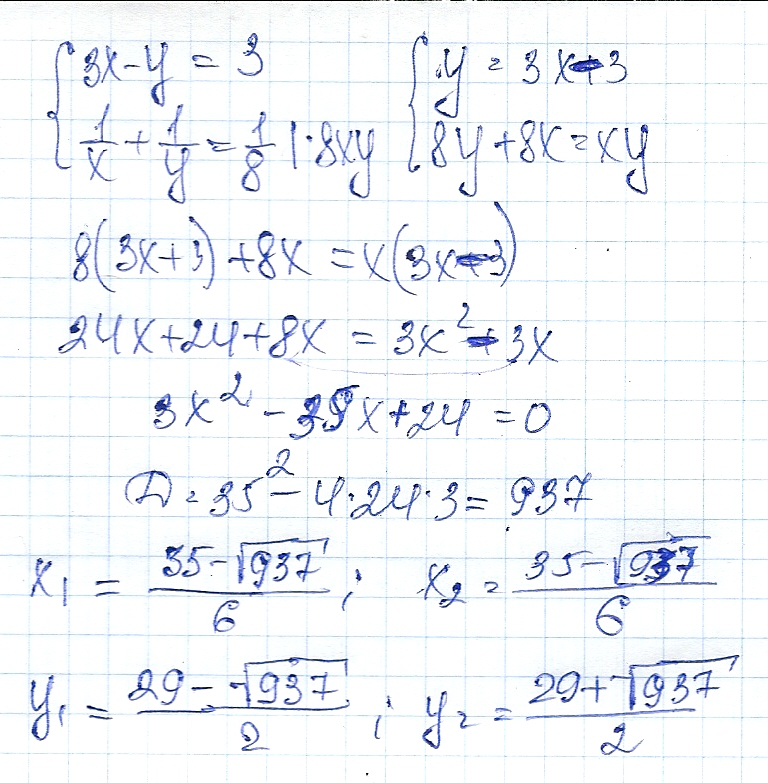 { 3x - y = 3 { y = 3x - 3
1/x + 1/y = 1/8 | · 8xy 8y + 8x = xy
8(3x+3) + 8x = x(3x-3)
24x + 24 + 8x = 3x² - 3x
3x² - 35x + 24 = 0
D = 35² - 4·24·3 = 937
x₁ = (35 - √937)/6 ; x₂ = (35 - √937)/6
y₁ = (29 - √937)/2 ; y₂ = (29 + √937)/2